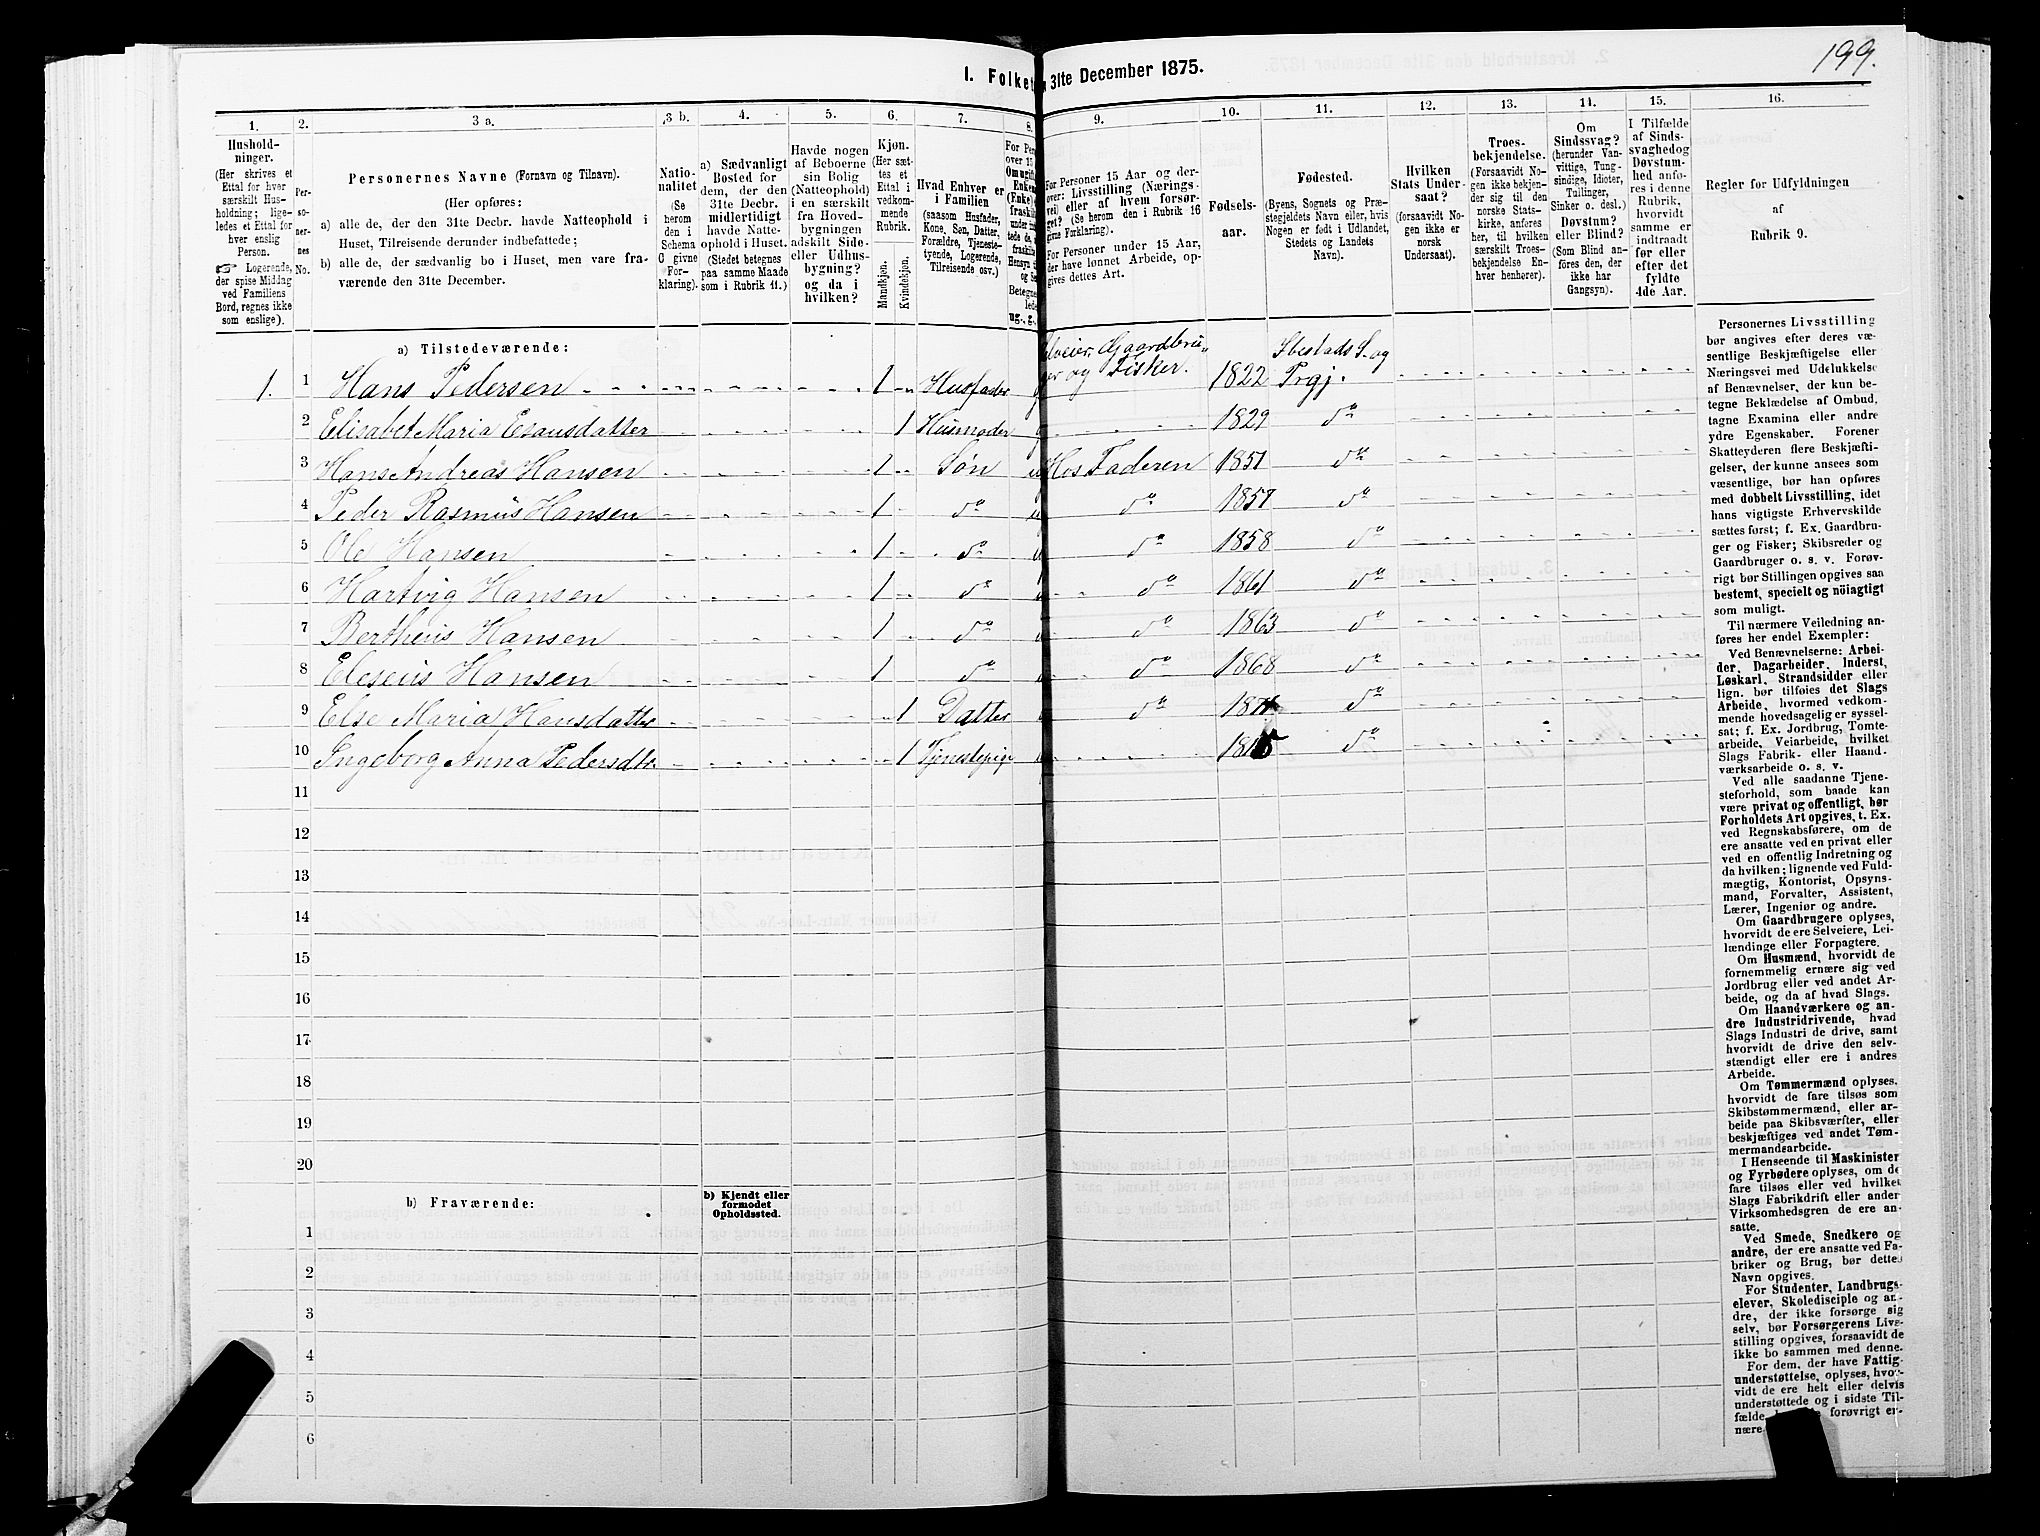 199.
I. Folket
n 31te December 1875.
1. 2. 3 a. 3 b. 4. 5. 6. 7. 8. 9. 10. 11. 12. 13. 14. 15. 16.
Hushold-
ninger.
(Her skrives et
Ettal for hver
særskilt Hus-
holdning; lige-
ledes et Ettal for
hver enslig
Person.
☞ Logerende,
der spise Middag
ved Familiens
Bord, regnes ikke
som enslige).
Per-
so-
ner-
nes
No.
Personernes Navne (Fornavn og Tilnavn).
(Her opføres:
a) alle de, der den 31te Decbr. havde Natteophold i
Huset, Tilreisende derunder indbefattede;
b) alle de, der sædvanlig bo i Huset, men vare fra-
værende den 31te December.
Natio-
nalitet
(Se
herom
den i
Schema
C givne
For-
klaring).
a) Sædvanligt
Bosted for
dem, der den
31te Decbr.
midlertidigt
havde Natte-
ophold i Huset.
(Stedet betegnes
paa samme Maade
som i Rubrik 11.)
Havde nogen
af Beboerne
sin Bolig
(Natteophold)
i en særskilt
fra Hoved-
bygningen
adskilt Side-
eller Udhus-
bygning?
og da i
hvilken?
Kjøn.
(Her sæt-
tes et
Ettal i
vedkom-
mende
Rubrik.
Mandkjøn.
Kvindekjøn.
Hvad Enhver er
i Familien
(saasom Husfader,
Kone, Søn, Datter,
Forældre, Tjeneste-
tyende, Logerende,
Tilreisende osv.)
For Personer 15 Aar og der-
over: Livsstilling (Nærings-
vei) eller af hvem forsør-
get? (Se herom i Rubrik 16
givne Forklaring).
For Personer under 15 Aar,
der have lønnet Arbeide, op-
gives dettes Art.
Fødsels-
aar.
Fødested.
(Byens, Sognets og Præ-
stegjeldets Navn eller, hvis
Nogen er født i Udlandet,
Stedets og Landets
Navn).
Hvilken
Stats Under-
saat?
(forsaavidt No-
gen ikke er
norsk
Undersaat).
Troes-
bekjendelse.
(Forsaavidt No-
gen ikke bekjen-
der sig til den
norske Stats-
kirke, anføres
her, til hvilken
særskilt Troes-
bekjendelse En-
hver henhører).
Om
Sindssvag?
(herunder Van-
vittige, Tung-
sindige, Idioter,
Tullinger,
Sinker o. desl.)
Døvstum?
eller Blind?
(Som Blind an-
føres den, der
ikke har
Gangsyn).
I Tilfælde
af Sinds-
svaghed og
Døvstum-
hed anfø-
res i denne
Rubrik,
hvorvidt
samme er
indtraadt
før eller
efter det
fyldte
4de Aar.
Regler for Udfyldningen
af
Rubrik 9.
a) Tilstedeværende:
1. 1 Hans Pedersen 1 Husfader Selveier, Gaardbru- ger og Fisker. 1822 Ibestads S. og Prgj.
2 Elisabet Maria Esausdatter 1 Husmoder 1829 do
3 Hans Andreas Hansen 1 Søn Hos Faderen 1851 do
4 Peder Rasmus Hansen 1 do do 1857 do
5 Ole Hansen 1 do do 1858 do
6 Hartvig Hansen 1 do do 1861 do
7 Bertheus Hansen 1 do do 1863 do
8 Eleseus Hansen 1 do do 1868 do
9 Else Maria Hansdatter 1 Datter do do
10 Ingeborg Anna Pedersdtr 1 Tjenestepige do
11
12
13
14
15
16
17
18
19
20
b) Fraværende:
b) Kjendt eller
formodet
Opholdssted.
1
2
3
4
5
6
Personernes Livsstilling
bør angives efter deres væ-
sentlige Beskjæftigelse eller
Næringsvei med Udelukkelse
af Benævnelser, der kun be-
tegne Beklædelse af Ombud,
tagne Examina eller andre
ydre Egenskaber. Forener
Skatteyderen flere Beskjæfti-
gelser, der kunne ansees som
væsentlige, bør han opføres
med dobbelt Livsstilling, idet
hans vigtigste Erhvervskilde
sættes først; f. Ex. Gaardbru-
ger og Fisker; Skibsreder og
Gaardbruger o. s. v. Forøv-
rigt bør Stillingen opgives saa
bestemt, specielt og nøiagtigt
som muligt.
Til nærmere Veiledning an-
føres her endel Exempler:
Ved Benævnelserne: Arbei-
der, Dagarbeider, Inderst,
Løskarl, Strandsidder eller
lign. bør tilføies det Slags
Arbeide, hvormed vedkom-
mende hovedsagelig er syssel-
sat; f. Ex. Jordbrug, Tomte-
arbeide, Veiarbeide, hvilket
Slags Fabrik- eller Haand-
værksarbeide o. s. v.
Ved alle saadanne Tjene-
steforhold, som baade kan
være privat og offentligt, bør
Forholdets Art opgives, t. Ex.
ved Regnskabsførere, om de
ere ansatte ved en privat eller
ved en offentlig Indretning og
da hvilken; lignende ved Fuld-
mægtig, Kontorist, Opsyns-
mand, Forvalter, Assistent,
Lærer, Ingeniør og andre.
Om Gaardbrugere oplyses,
hvorvidt de ere Selveiere, Lei-
lændinge eller Forpagtere.
Om Husmænd, hvorvidt de
fornemmelig ernære sig ved
Jordbrug eller ved andet Ar-
beide, og da af hvad Slags.
Om Haandværkere og an-
dre Industridrivende, hvad
Slags Industri de drive, samt
hvorvidt de drive den selv-
stændigt eller ere i andres
Arbeide.
Om Tømmermænd oplyses,
hvorvidt de fare tilsøs som
Skibstømmermænd, eller ar-
beide paa Skibsværfter, eller
beskjæftiges ved andet Tøm-
mermandsarbeide.
I Henseende til Maskinister
og Fyrbødere oplyses, om de
fare tilsøs eller ved hvilket
Slags Fabrikdrift eller anden
Virksomhedsgren de ere an-
satte.
Ved Smede, Snedkere og
andre, der ere ansatte ved Fa-
briker og Brug, bør dettes
Navn opgives.
For Studenter, Landbrugs-
elever, Skoledisciple og an-
dre, der ikke forsørge sig
selv, bør Forsørgerens Livs-
stilling opgives, forsaavidt de
ikke bo sammen med denne.
For dem, der have Fattig-
understøttelse, oplyses, hvor-
vidt de ere helt eller delvis
understøttede og i sidste Til-
fælde, forøvrigt er-
nære